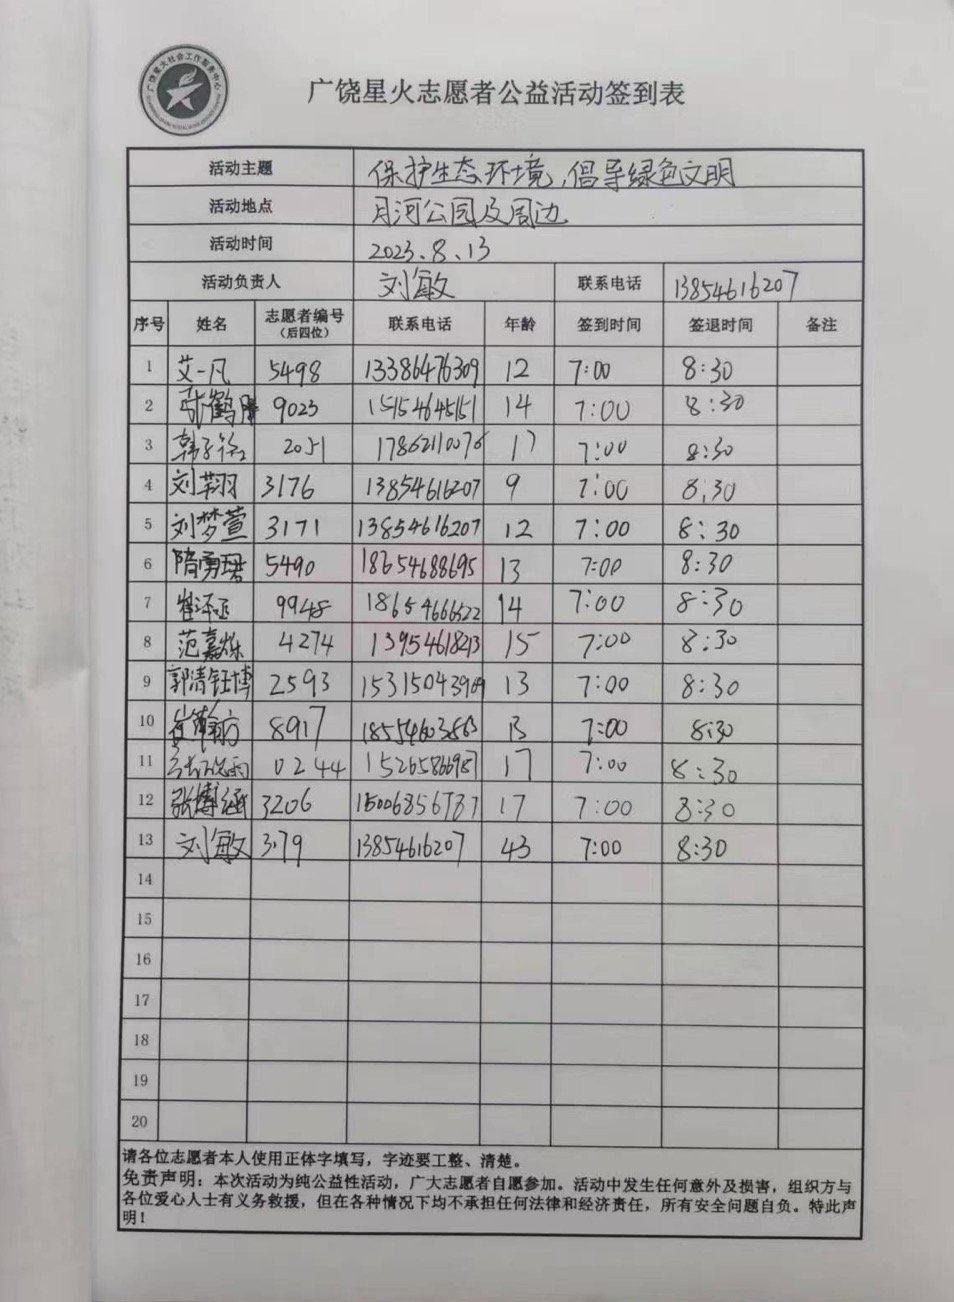 广饶星火社会工作服务中心
广饶星火志愿者公益活动签到表
活动主题 保护生态环境,倡导绿色文明
活动地点 月河公园及周边
活动时间 2023.8.13
活动负责人 刘敏 联系电话 13854616207
序号 姓名 志愿者编号(后四位) 联系电话 年龄 签到时间 签退时间 备注
1 艾一凡 5498 13386476309 12 7:00 8:30
2 张鹤腾 9023 15154645151 14 7:00 8:30
3 2051 17862110076 17 7:00 8:30
4 刘翔 3176 13854616207 9 7:00 8:30
5 刘梦萱 3171 13854616207 12 7:00 8:30
6 隋勇珺 5490 18654688695 13 7:00 8:30
7 崔泽丞 9948 18654666522 14 7:00 8:30
8 范嘉烁 4274 13954618213 15 7:00 8:30
9 郭清钰博 2593 15315043909 13 7:00 8:30
10 8917 18554603863 13 7:00 8:30
11 0244 15265866987 17 7:00 8:30
12 张博涵 3206 15006856787 17 7:00 8:30
13 刘敏 3179 13854616207 43 7:00 8:30
14
15
16
17
18
19
20
请各位志愿者本人使用正体字填写,字迹要工整、清楚。
免责声明:本次活动为纯公益性活动,广大志愿者自愿参加。活动中发生任何意外及损害,组织方与
各位爱心人士有义务救援,但在各种情况下均不承担任何法律和经济责任,所有安全问题自负。特此声
明!